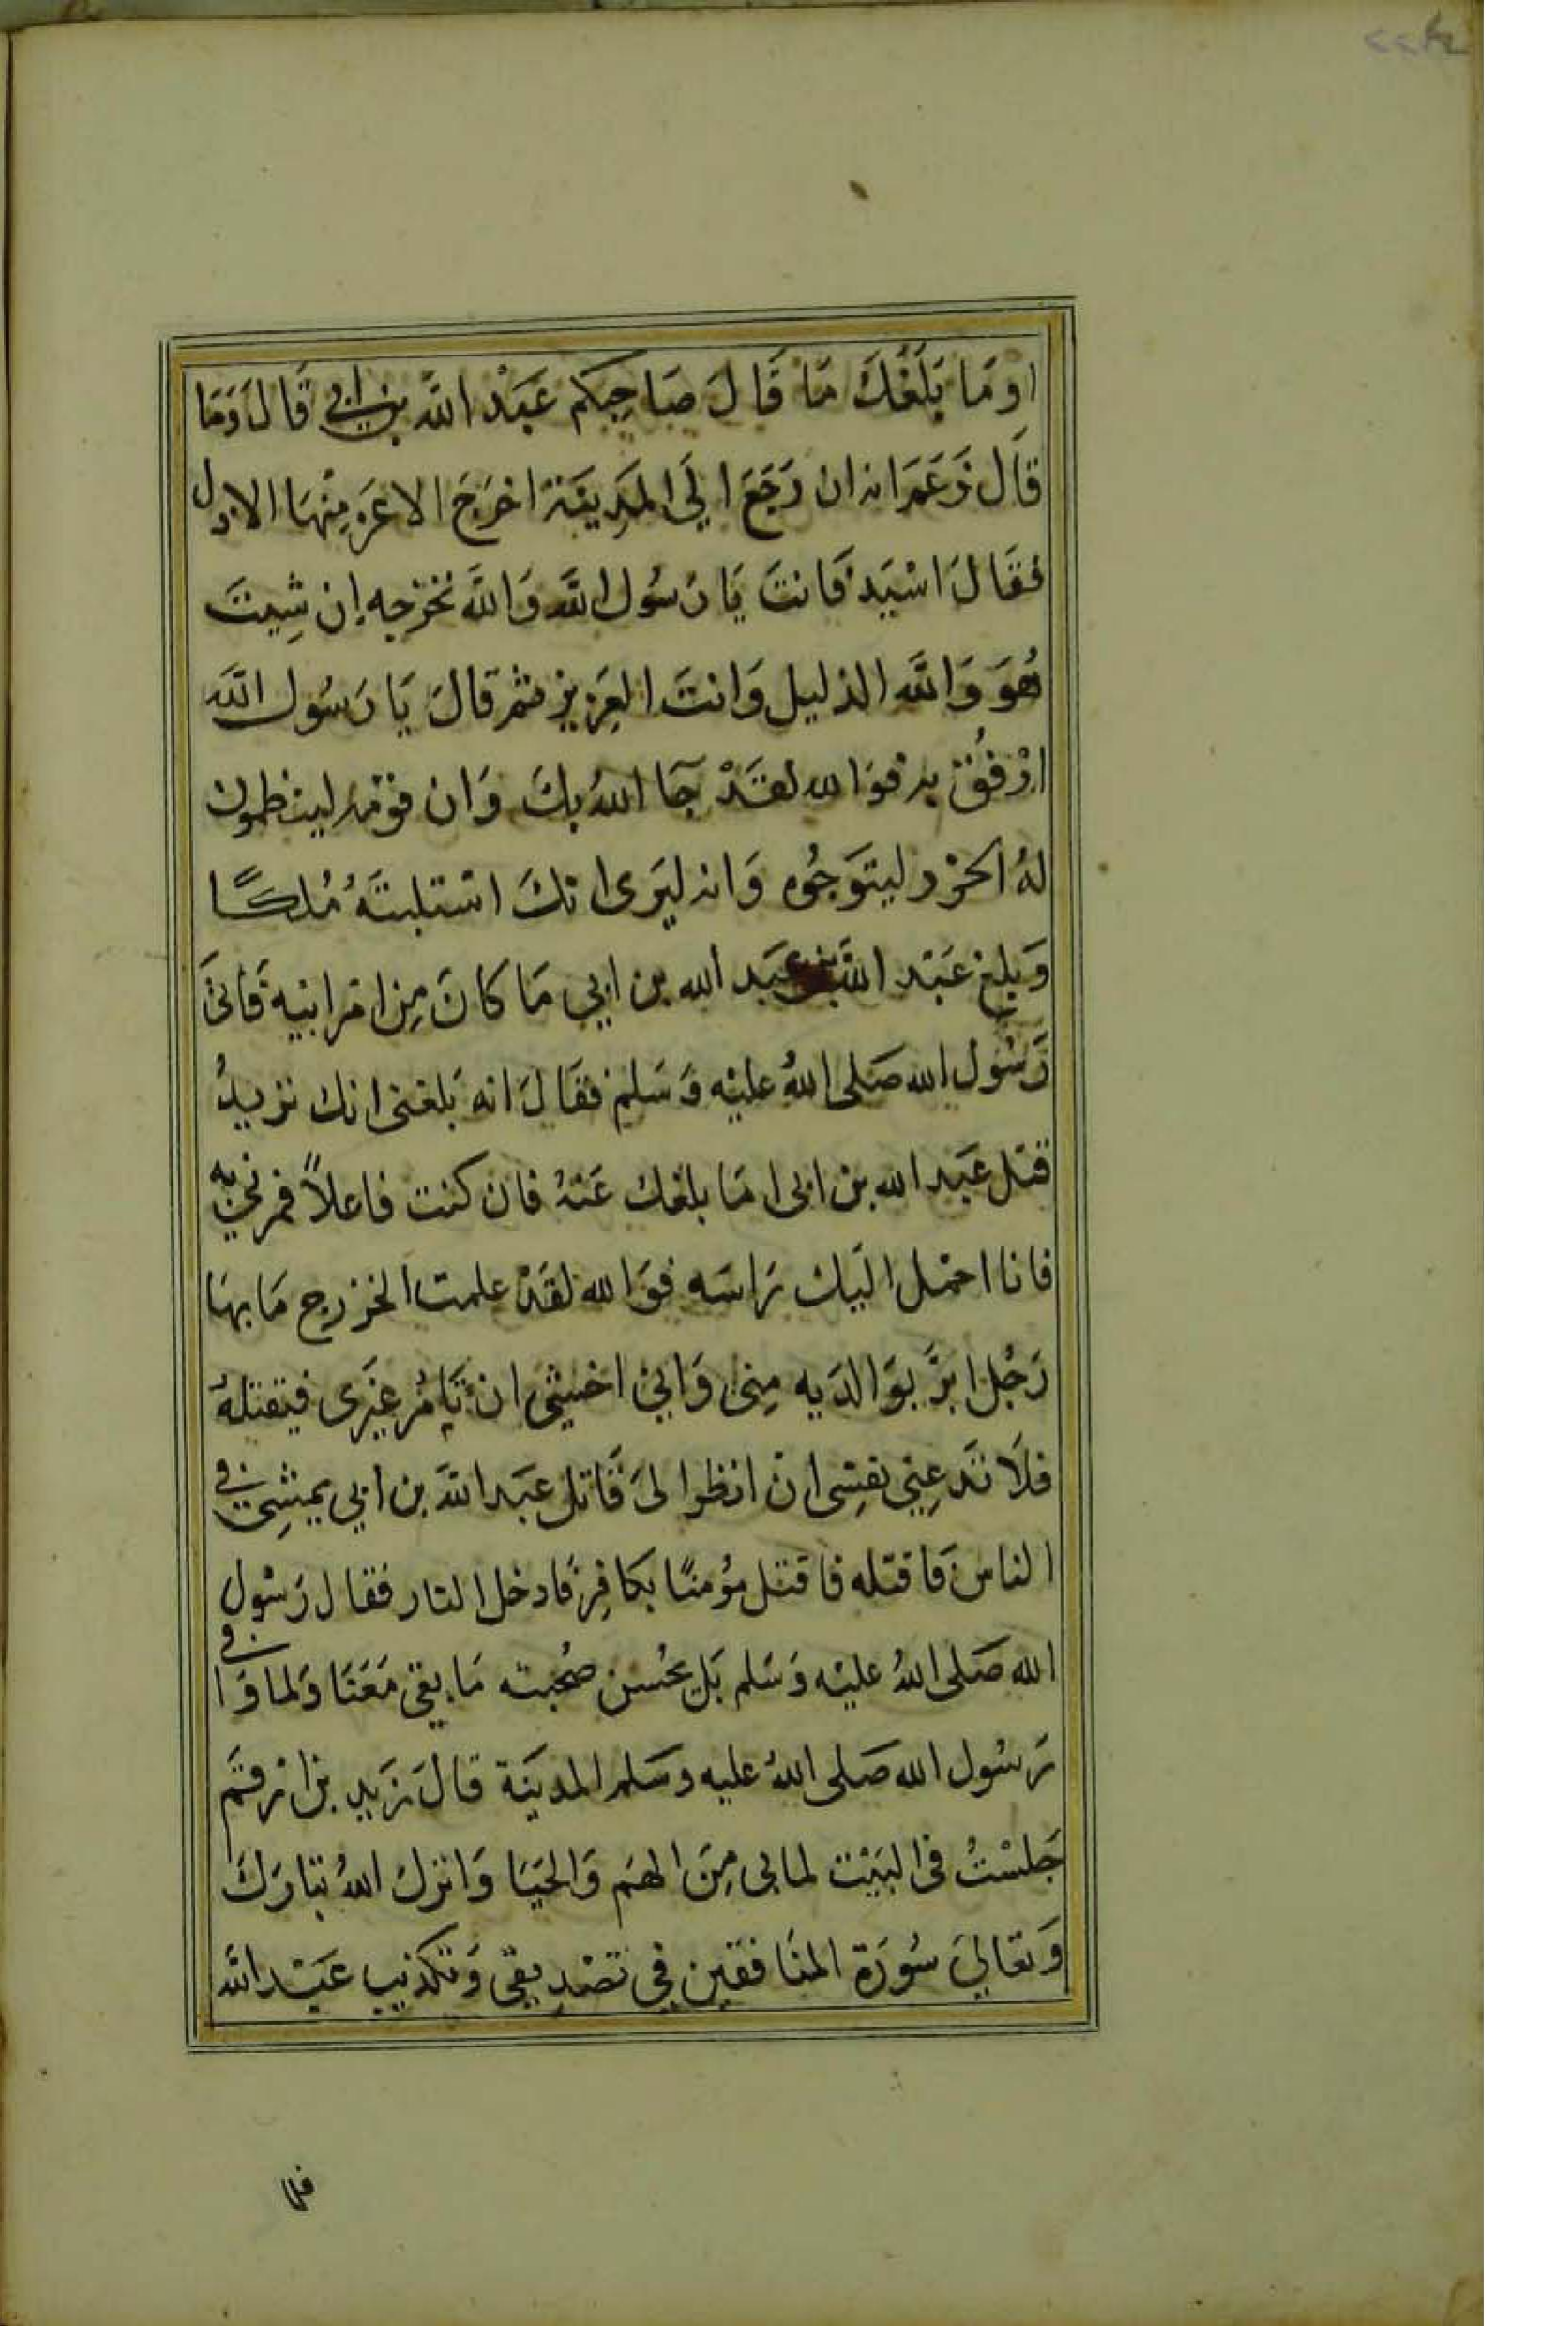 اوَمَا بَلَغَكَ مَا قَالَ صَاحِبكم عَبْد الله بن ابي قَالَ وَمَا
قَال زَعَمَ انه ان رَجَعَ الَي المَدِينَة اخرَجَ الاعَز مِنْهَا الاذل
فقَالَ اسْيَد فَانتَ يَا رَسُول الله وَالله نخرجه إن شِيتَ
هُوَ وَالله الذليل وَانتَ العَزِيز ثم قالَ يَا رَسُول الله
ارْفُق به فوَالله لقَدْ جَا اللهُ بكَ وَان قومَه لينظمون
لهُ الخرز ليتوَجُوه وَانه ليَرى انكَ استلبتَهُ مُلكًا
وَبلغ عَبْد الله بن عَبَد الله بن ابي مَا كانَ مِن امر ابيه فَاتىَ
رَسُول الله صَلى اللهُ عليْه وَسَلم فقَالَ انه بَلغنى انك تريدُ
قتل عَبَد الله بن ابى امَا بلغك عَنهُ فان كنت فاعلاً فمرني به
فانا احمْل اليَك رَاسَه فوَالله لقَدْ علمت الخزرج مَا بهَا
رَجُل ابرَّ بوَالدَيه مِنى وَاني اخشيَ ان تَامُر غيْرى فيَقتلهُ
فلاَ تَدعِني نفسِى ان انظر الىَ قَاتل عبَد الله بن ابي يمشِى في
الناس فَاقتله فاقتل مؤمنًا بكافِر فَادخل النار فقال رَسُول
الله صَلى اللهُ عليْه وَسَلم بَل نحُسن صُحبته مَا بقيَ مَعَنَا وَلما وَافي
رَسُول الله صَلى اللهُ عليه وسَلم المدينَة قالَ زَيد بن ارقَم
جَلسْتُ فى البَيْت لما بى مِنَ الهَم وَالحيَا وَانزل اللهُ تبَارَكَ
وَتعَاليَ سُورَة المنَافقين في تصْدِيقي وَتكذيب عَبَد الله
فلما